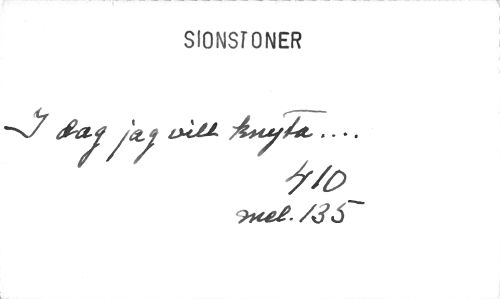 SIONSTONER
I dag jag vill knyta....
410
mel. 135